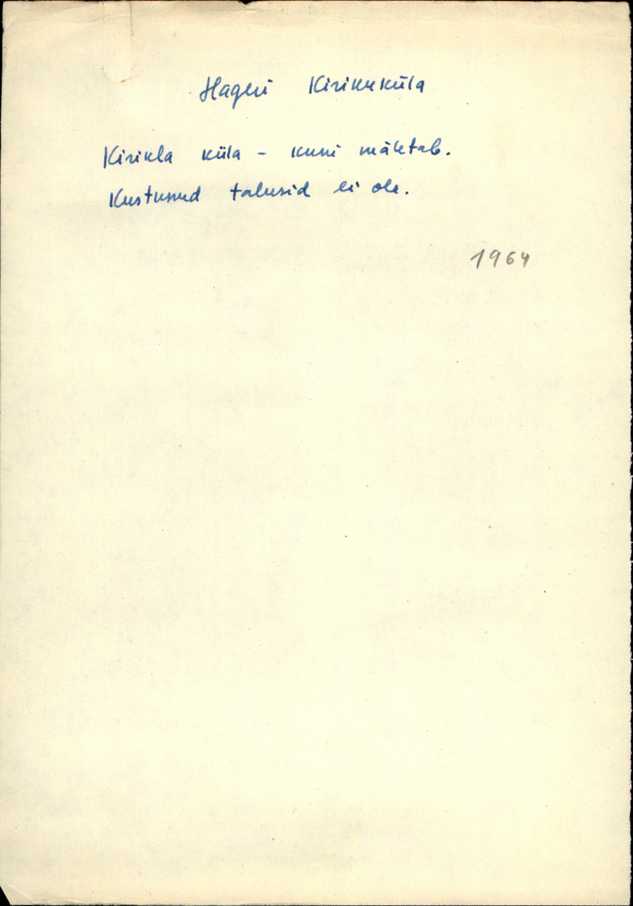 Hageri Kirikuküla
Kirikla küla - kuni mäletab.
Kustunud talusid ei ole.
1964